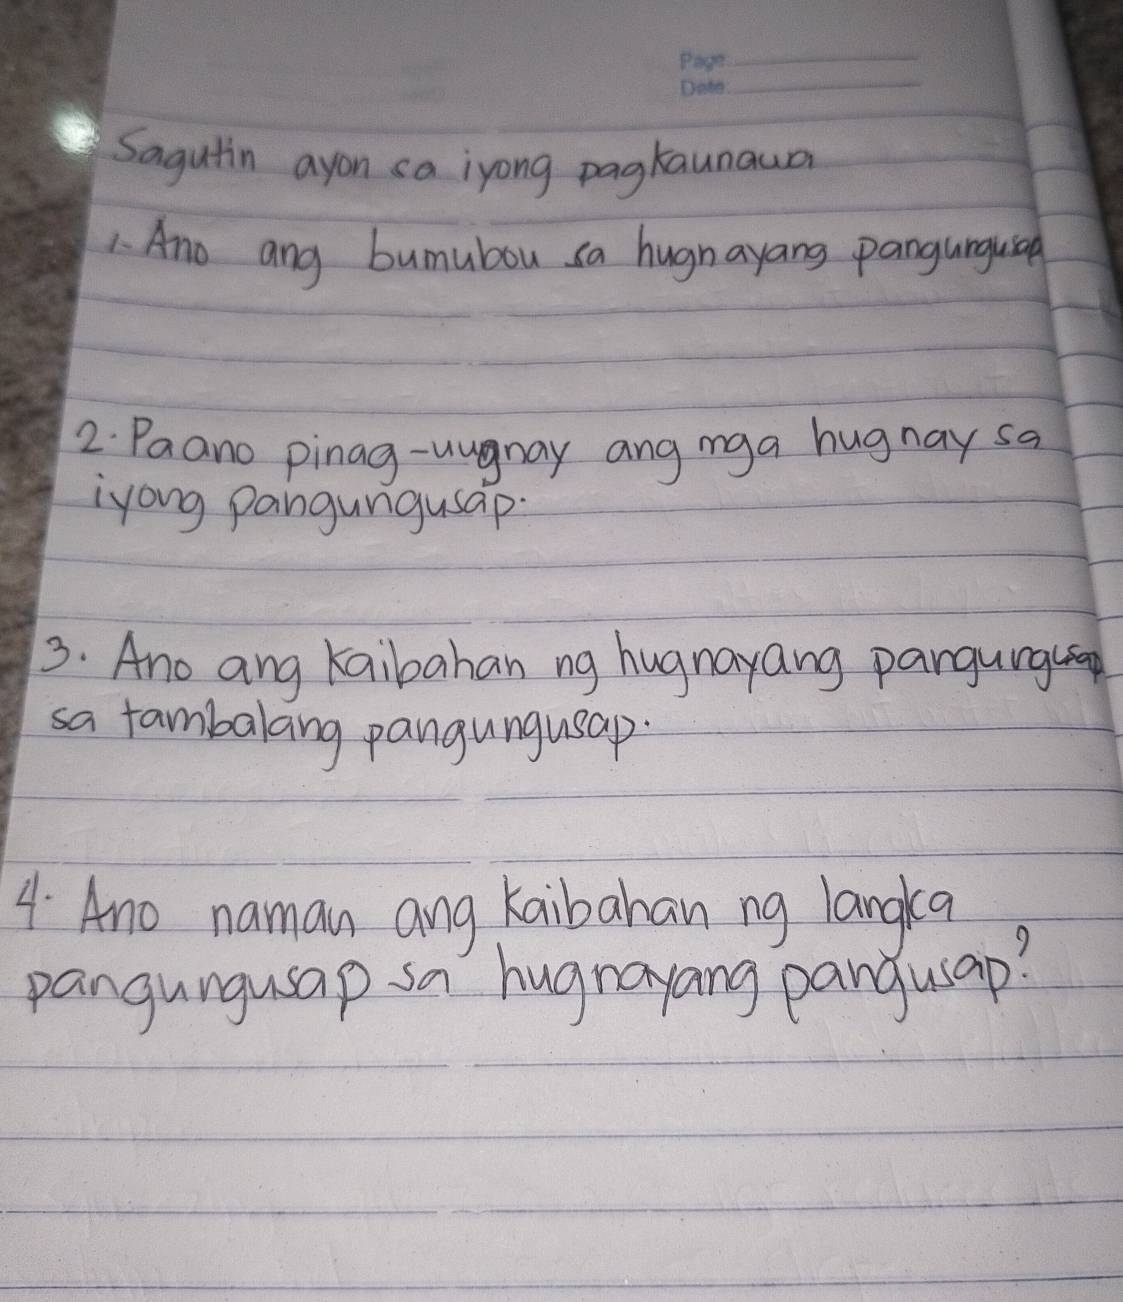 Page
Date
Sagutin ayon sa iyong pagkaunawa
1. Ano ang bumubou sa hugnayang pangungusap
2. Paano pinag-uugnay ang mga hugnay sa
iyong pangungusap.
3. Ano ang kaibahan ng hugnayang pangungusap
sa tambalang pangungusap.
4. Ano naman ang kaibahan ng langka
pangungusap sa hugnayang pangusap?